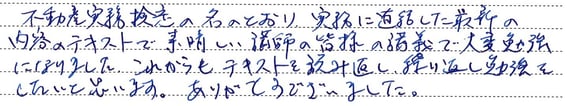 不動産実務検定の名のとおり、実務に直結した最新の
内容のテキストで素晴しい講師の皆様の講義で大変勉強
になりました。これからもテキストを読み返し、繰り返し勉強を
したいと思います。ありがとうございました。